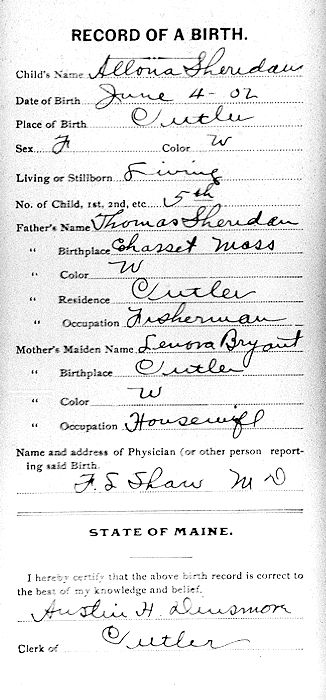 RECORD OF A BIRTH.
Child's Name Allona Sheridan
Date of Birth June 4-02
Place of Birth Cutler
Sex F Color W
Living or Stillborn Living
No. of Child, 1st, 2nd, etc 5th
Father's Name Thomas Sheridan
" Birthplace Chasset Mass
" Color W
" Residence Cutler
" Occupation Fisherman
Mother's Maiden Name Lenora Bryant
" Birthplace Cutler
" Color W
" Occupation Housewife
Name and address of Physician (or other person report-
ing said Birth.
F. S Shaw M D
STATE OF MAINE.
I hereby certify that the above birth record is correct to
the best of my knowledge and belief.
Austin H. Dinsmore
Clerk of Cutler